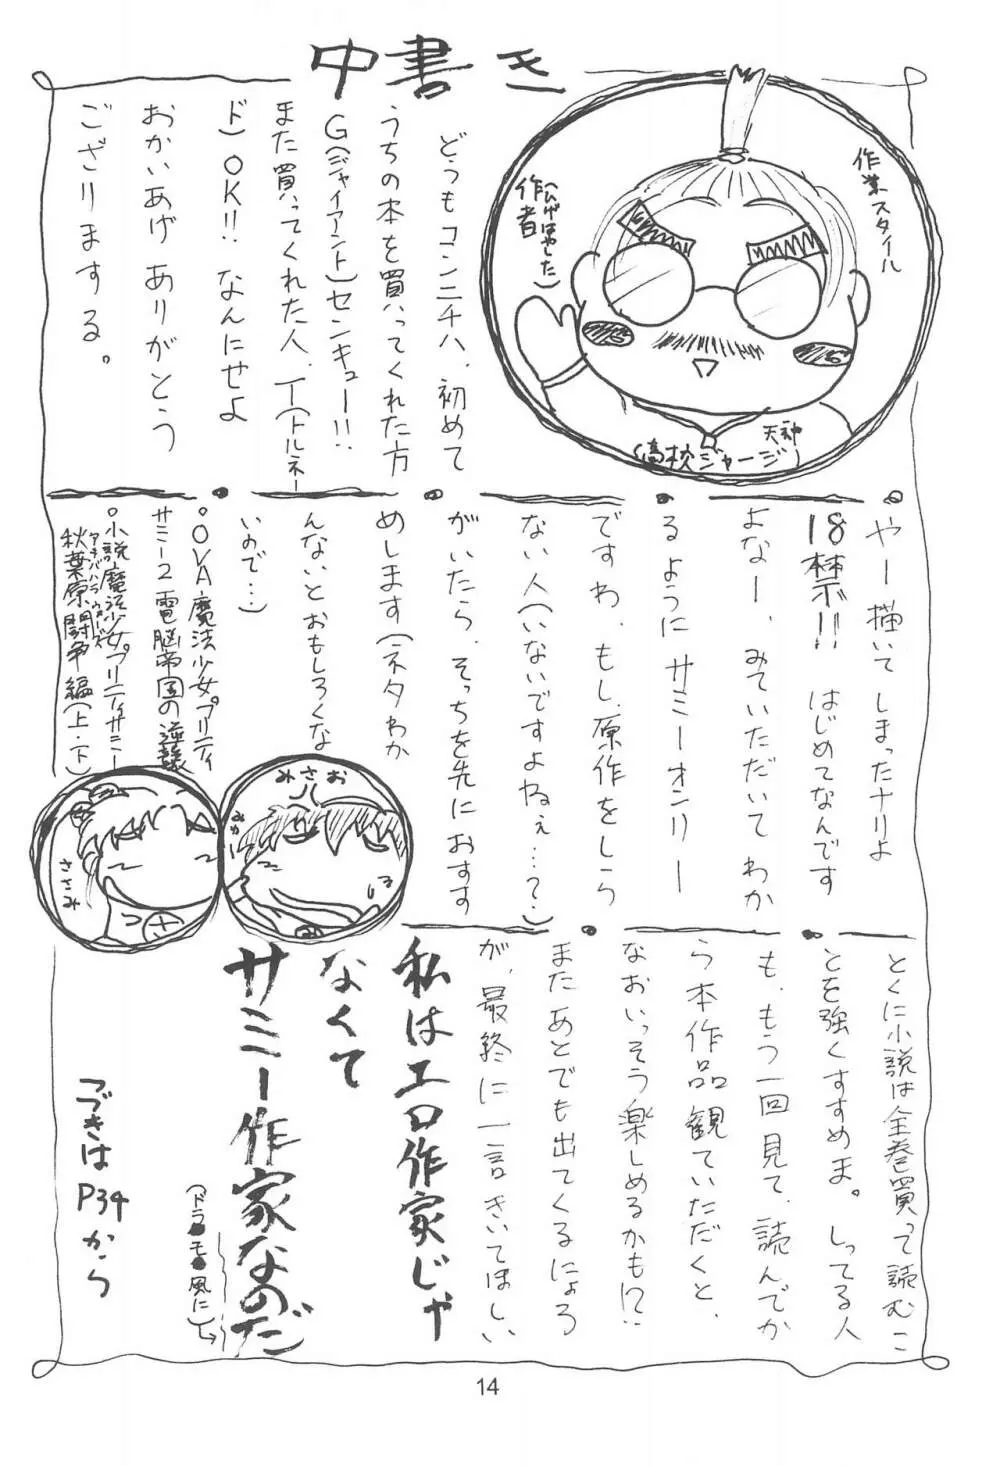 中書き
作業スタイル
作者
(ひげはやした)
天神
(高校ジャージ)
どうもコンニチハ、初めて
うちの本を買ってくれた方
G(ジャイアント)センキュー!!
また買ってくれた人、T(トルネー
ド)OK!! なんにせよ
おかいあげありがとう
ござりまする。
やー描いてしまったナリよ
18禁!! はじめてなんです
よなー、みていただいてわか
るようにサミーオンリー
ですわ。もし、原作をしら
ない人(いないですよねぇ…?)
がいたら、そっちを先におすす
めします(ネタわか
んないとおもしろくな
いので…)
○OVA魔法少女プリティ
サミー2電脳帝国の逆襲
○小説魔法少女プリティサミー
秋葉原闘争編(上・下)
アキハバラウォーズ
おさみ
みさお
ささみ
とくに小説は全巻買って読むこ
とを強くすすめま。しってる人
も、もう一回見て、読んでか
ら本作品観ていただくと、
なおいっそう楽しめるかも!?
またあとでも出てくるにょろ
が、最終に一言きいてほしい
私はエロ作家じゃ
なくて
サミー作家なのだ
(ドラ●モ●風に)
つづきは
P34から
14